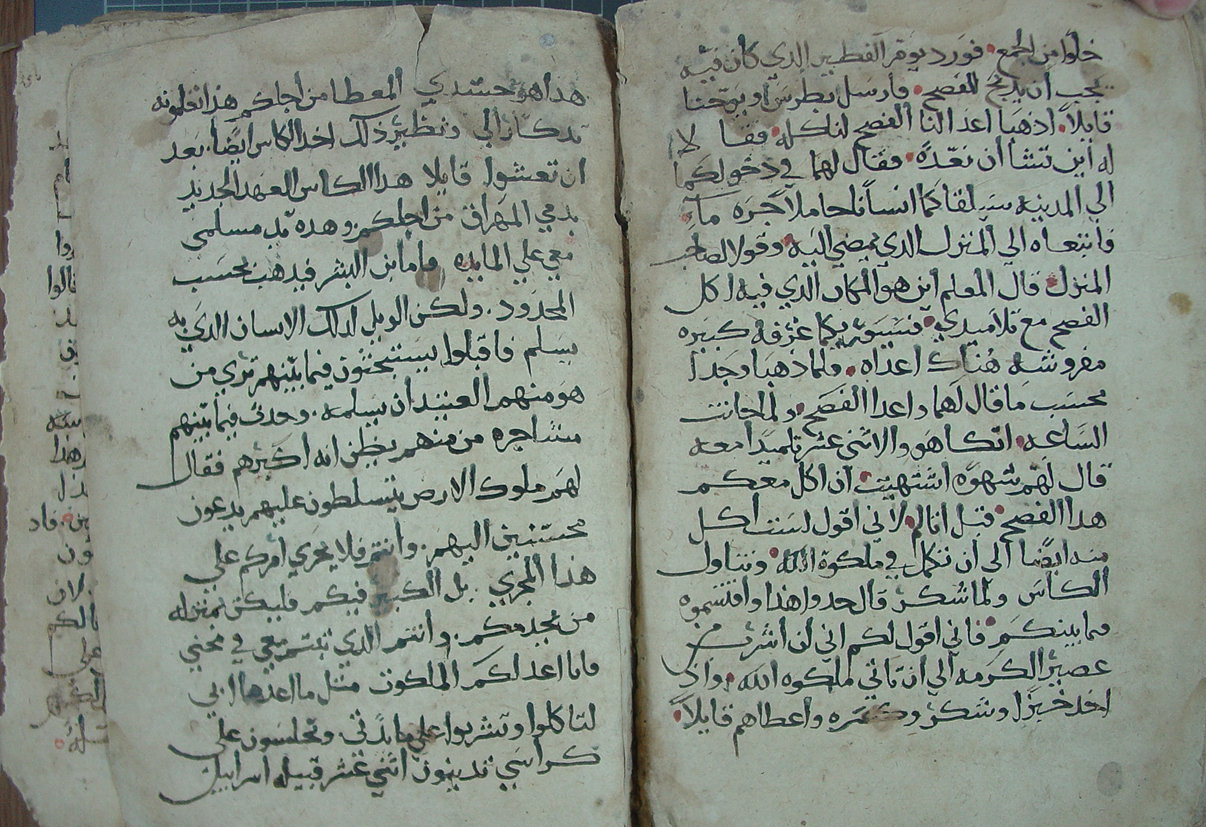 خلوا من الجمع. فورد يوم الفطير الذي كان فيه
يجب ان يدبح الفصح. فارسل بطرس و يوحنا
قايلاً. اذهبا اعدا لنا الفصح لناكله. فقالا
له اين تشا ان نعده. فقال لهما في دخولكما
الي المدينه سيلقاكما انساناً حاملاً جره ماءٍ
فاتبعاه الي المنزل الذي يمضي اليه. وقولا لصاحب
المنزل. قال المعلم اين هو المكان الذي فيه اكل
الفصح مع تلاميدي. فسيوريكما غرفه كبيره
مفروشه هناك اعداه. ولما ذهبا وجدا
بحسب ما قال لهما و اعدا الفصح. ولما حانت
الساعه. اتكا هو والاثنى عشر تلميداً معه
قال لهم شهوه اشتهيت. ان اكل معكم
هدا الفصح. قبل ان الم. لاني اقول لست اكل
منه ايضا الى ان تكمل في ملكوة الله. وتناول
الكاس ولما شكر قال خدوا هذا و اقتسموه
فما بينكم. فاني اقول لكم اني لن اشرب من
عصير الكرمه الي ان تاتي ملكوه الله.
اخد خبزاً وشكر وكسره و اعطاهم قايلاً.
هداهو جسدي المعطا من اجلكم هذا تفعلونه
تدكار الي ونظير ذلك اخد الكاس ايضا. بعد
ان تعشوا قايلا هدا الكاس العهد الجديد
بدمي المهراق من اجلكم. و هده يد مسلمى
معي علي المايده. فاما ابن البشر فيدهب بحسب
المحدود. ولكن الويل لدلك الانسان الذي به
يسلم فاقبلوا يستبحثون فيما بينهم تري من
هو منهم العتيد ان يسلمه. وحدث فيما بينهم
مشاجره من منهم يظن انه اكبرهم فقال
لهم ملوك الارض يتسلطون عليهم يدعون
محسنين اليهم. وانتم فلا يجري امركم علي
هذا المجري بل الكبير فيكم فليكن بمنزله
من يخدمكم. وانتم الذي ثبتم معي في محني
فانا اعد لكم الملكوت مثل ما اعدها ابي
لتاكلوا وتشربوا علي مايدتي. وتجلسون علي
كراسي تدينون اثني عشر قبيله اسراييل